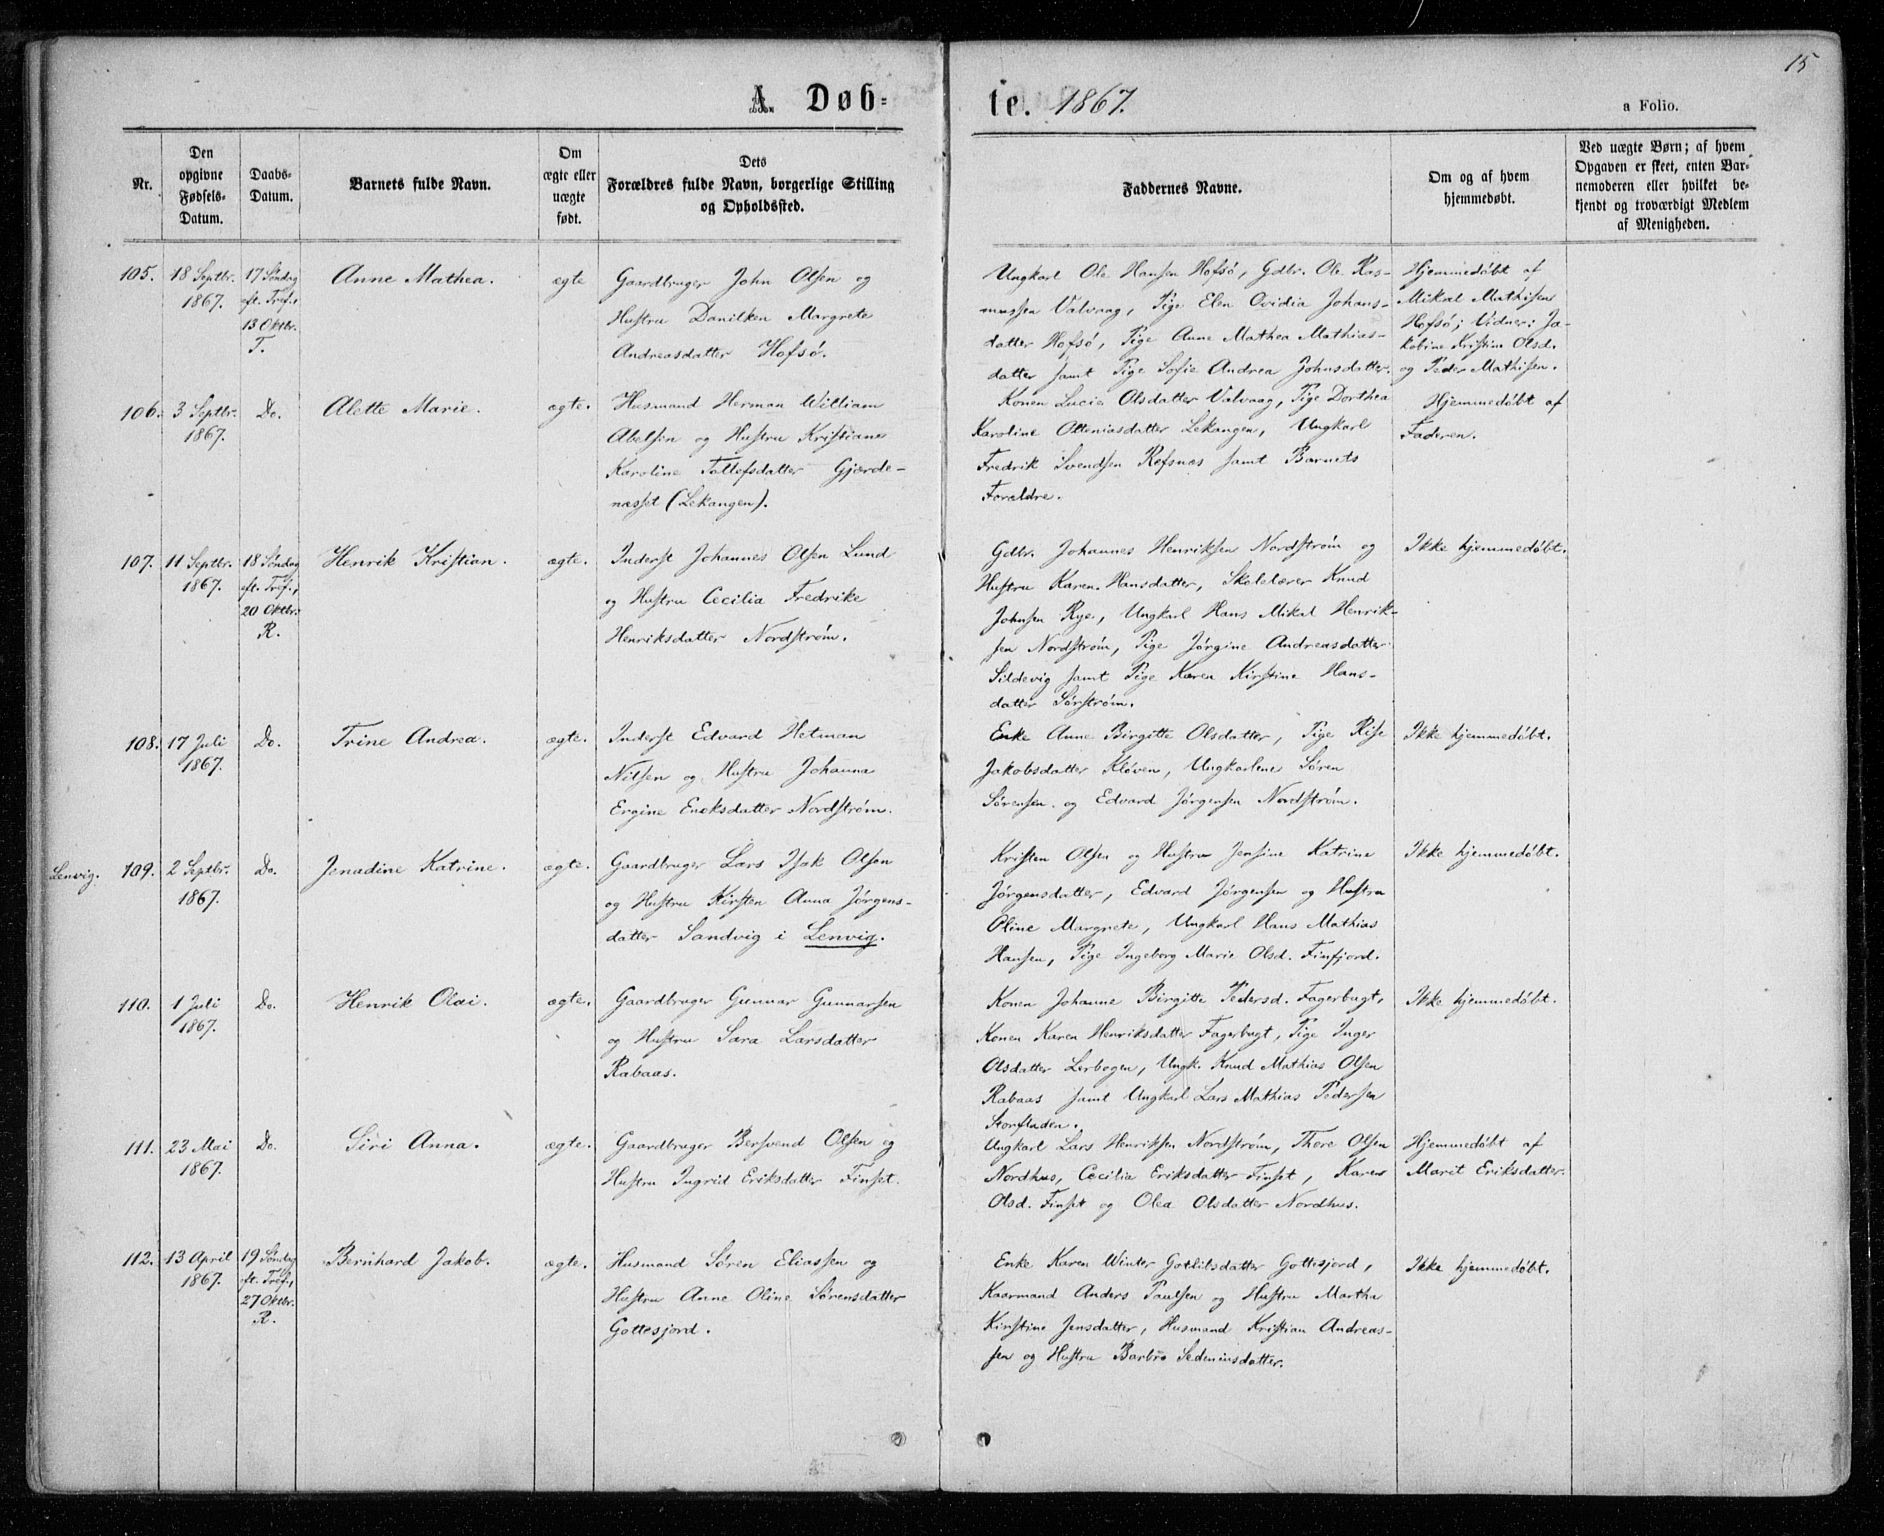 15
A. Døb=
te. 1867.
a Folio.
Nr.
Den
opgivne
Fødsels-
Datum.
Daabs-
Datum.
Barnets fulde Navn.
Om
ægte eller
uægte
født.
Dets
Forældres fulde Navn, borgerlige Stilling
og Opholdssted.
Faddernes Navne.
Om og af hvem
hjemmedøbt.
Ved uægte Børn; af hvem
Opgaven er skeet, enten Bar-
nemoderen eller hvilket be-
kjendt og troværdigt Medlem
af Menigheden.
105.
18 Septbr.
1867.
17 Søndag
eft. Tref.,
13 Oktbr.
T.
Anne Mathea.
ægte
Gaardbruger John Olsen og
Hustru Danilken Margrete
Andreasdatter Hofsø.
Ungkarl Ole Hansen Hofsø, Gdbr. Ole Ras-
mussen Valvaag, Pige Elen Ovidia Johans-
datter Hofsø, Pige Anne Mathea Mathias-
datter samt Pige Sofie Andrea Johnsdatter.
Hjemmedøbt af
Mikal Mathisen
Hofsø; Vidner: Ja-
kobine Kristine Olsd.
og Peder Mathisen.
106.
3 Septbr.
1867.
Do.
Alette Marie.
ægte.
Husmand Herman William
Abelsen og Hustru Kristiane
Karoline Tollefsdatter Gjærde-
næsset (Lekangen).
Konen Lucie Olsdatter Valvaag, Pige Dorthea
Karoline Otteniasdatter Lekangen, Ungkarl
Fredrik Svendsen Refsnes samt Barnets
Forældre.
Hjemmedøbt af
Faderen.
107.
11 Septbr.
1867.
18 Søndag
eft. Tref.,
20 Oktbr.
R.
Henrik Kristian.
ægte.
Inderst Johannes Olsen Lund
og Hustru Cecilia Fredrike
Henriksdatter Nordstrøm.
Gdbr. Johannes Henriksen Nordstrøm og
Hustru Karen Hansdatter, Skolelærer Knud
Johnsen Rye, Ungkarl Hans Mikal Henrik-
sen Nordstrøm, Pige Jørgine Andreasdatter
Sildevig samt Pige Karen Kirstine Hans-
datter Sørstrøm.
Ikke hjemmedøbt.
108.
17 Juli
1867.
Do.
Trine Andrea.
ægte.
Inderst Edvard Hetman
Nilsen og Hustru Johanna
Ergine Enoksdatter Nordstrøm.
Enke Anne Birgitte Olsdatter, Pige Rise
Jakobsdatter Kløven, Ungkarlene Søren
Sørensen og Edvard Jørgensen Nordstrøm.
Ikke hjemmedøbt.
Lenvig.
109.
2 Septbr.
1867.
Do.
Jenadine Katrine.
ægte.
Gaardbruger Lars Isak Olsen
og Hustru Kirsten Anna Jørgens-
datter Sandvig i Lenvig.
Kristen Olsen og Hustru Jensine Katrine
Jørgensdatter, Edvard Jørgensen og Hustru
Oline Margrete, Ungkarl Hans Mathias
Hansen, Pige Ingeborg Marie Olsd. Finfjord.
Ikke hjemmedøbt.
110.
1 Juli
1867.
Do.
Henrik Olai.
ægte.
Gaardbruger Gunnar Gunnarsen
og Hustru Sara Larsdatter
Rabaas.
Konen Johanne Birgitte Pedersd. Fagerbugt,
Konen Karen Henriksdatter Fagerbugt, Pige Inger
Olsdatter Lerbogen, Ungk. Knud Mathias Olsen
Rabaas samt Ungkarl Lars Mathias Pedersen
Storfladen.
Ikke hjemmedøbt.
111.
23 Mai
1867.
Do.
Siri Anna.
ægte.
Gaardbruger Bersvend Olsen og
Hustru Ingrid Eriksdatter Finset.
Ungkarl Lars Henriksen Nordstrøm, Thore Olsen
Nordhus, Cecilia Eriksdatter Finset, Karen
Olsd. Finset og Olea Olsdatter Nordhus.
Hjemmedøbt af
Marit Eriksdatter.
112.
13 April
1867.
19 Søndag
eft. Tref.,
27 Oktbr.
R.
Bernhard Jakob.
ægte.
Husmand Søren Eliassen og
Hustru Anne Oline Sørensdatter
Gottesjord.
Enke Karen Winter Gotlitsdatter Gottesjord,
Kaarmand Anders Paulsen og Hustru Martha
Kirstine Jensdatter, Husmand Kristian Andreas-
sen og Hustru Barbro Sedeniusdatter.
Ikke hjemmedøbt.